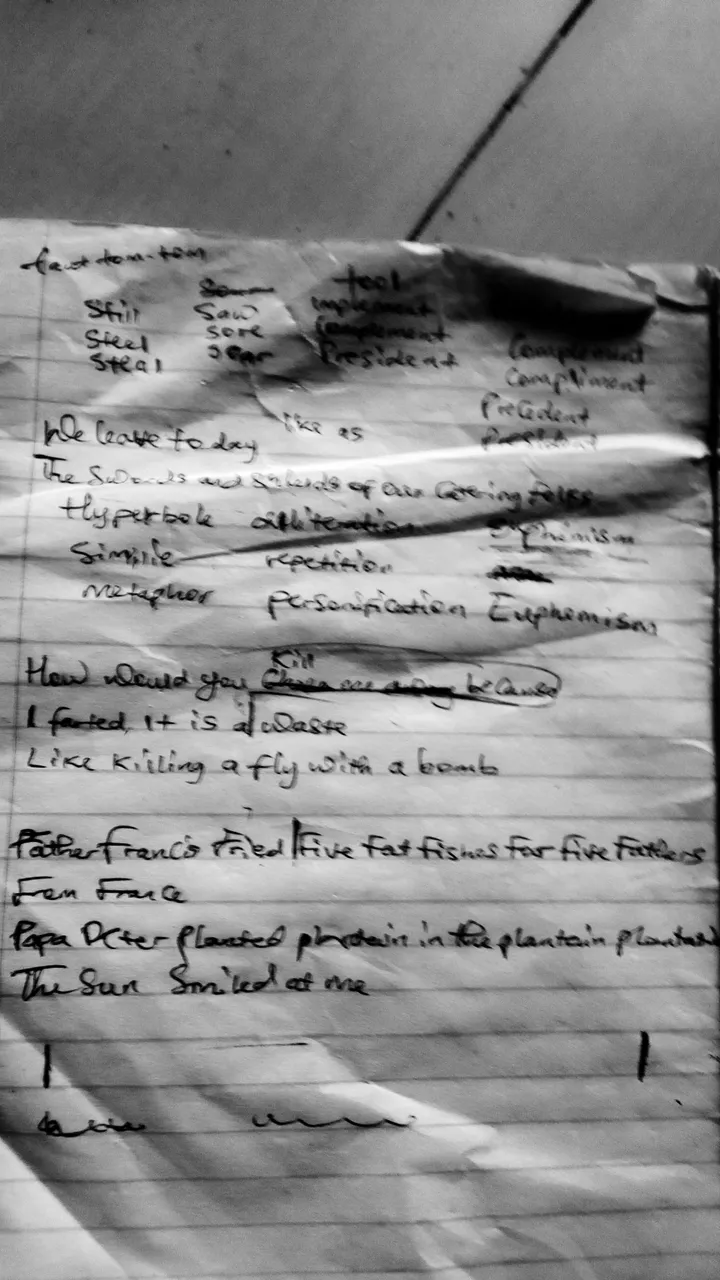 tom-tom
tool
Still Saw implement
Steel sore Complement
Steal soar President Complement
Compliment
Precedent
President
like as
We leave today
The and of our
Hyperbole alliteration
Simile repetition
metaphor personification Euphemism
Kill
How would you because
I farted, it is a waste
Like killing a fly with a bomb
Father Francis Fried Five Fat fishes For five Fathers
From France
Papa Peter planted plantain in the plantain
The Sun Smiled at me